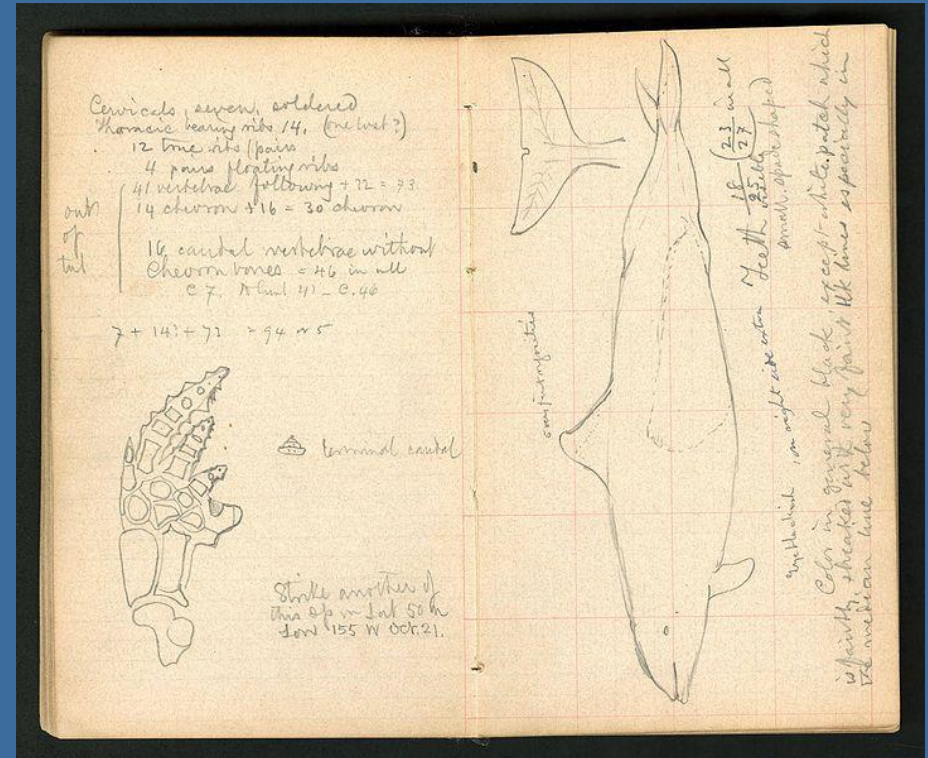 Cervicals, seven, soldered
Thoracic bearing ribs 14. (one lost?)
12 true ribs / pairs
4 pairs floating ribs
41 vertebrae following + 32 = 73
14 chevron + 16 = 30 chevron
16 caudal vertebrae without
Chevron bones = 46 in all
C 7. 41 - C. 46
out
of
7 + 14? + 73 = 94 or 5
terminal caudal
Strike another of
this sp in Lat 50 N
Lon 155 W Oct. 21.
Teeth 18/25 visible (23/27) in all
small. spade shaped
on right side extra
Color in general black except white patch which
is faintly streaked with very faint lines especially in
the median line below